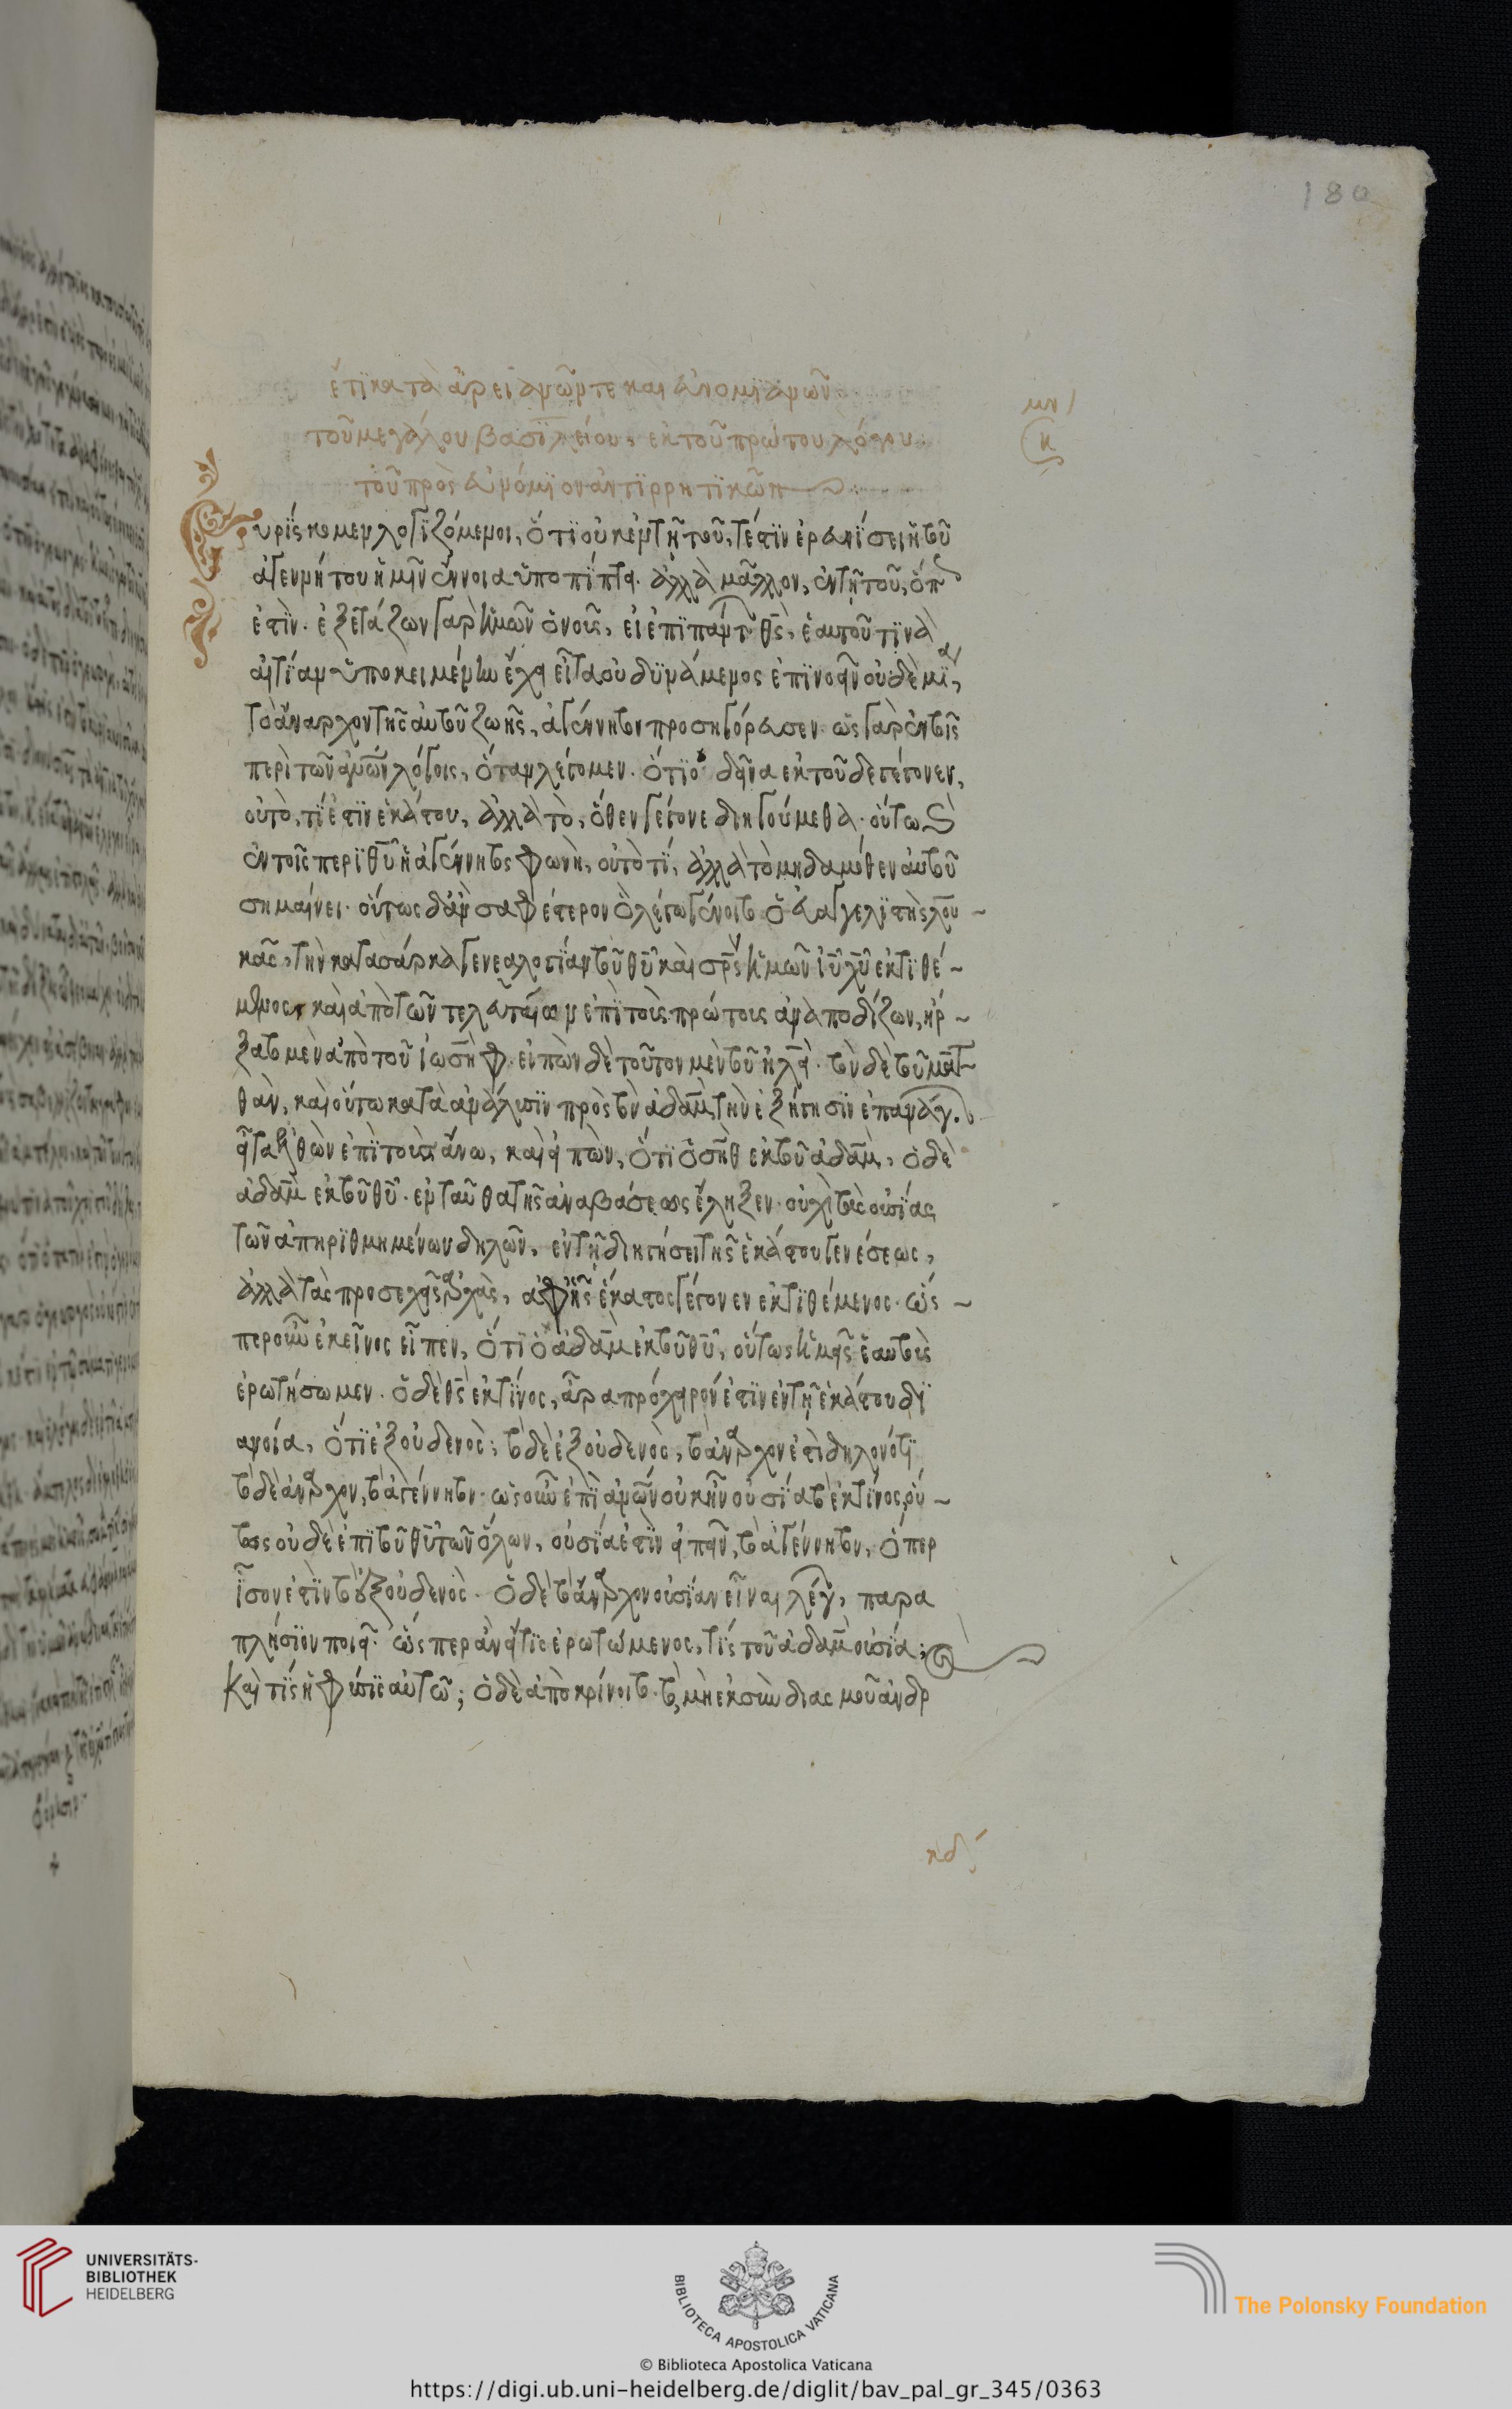 180
ἔτι κατὰ ἀρειανῶν τε καὶ εὐνομιανῶν
τοῦ μεγάλου βασιλείου, ἐκ τοῦ πρώτου λόγου
τοῦ πρὸς εὐνόμιον ἀντιρρητικῶν
μν
κ
Εὑρίσκομεν λογιζόμενοι, ὅτι οὐκ ἐν τῆ τοῦ, τί ἐστιν ἐρευνήσει ἡ τοῦ
ἀγεννήτου ἡμῖν ἔννοια ὑποπίπτει. ἀλλὰ μᾶλλον, ἐν τῆ τοῦ, ὅπως
ἐστίν. ἐξετάζων γὰρ ἡμῶν ὁ νοῦς, εἰ ἐπὶ πάντων θς, ἑαυτοῦ τινὰ
αἰτίαν ὑπερκειμένην ἔχει εἶτα οὐ δυνάμενος ἐπινοεῖν οὐδεμίαν,
τὸ ἄναρχον τῆς αὐτοῦ ζωῆς, ἀγέννητον προσηγόρευσεν. ὡς γὰρ ἐν τοῖς
περὶ τῶν ἀνων λόγοις, ὅταν λέγομεν. ὅτι ὁ δεῖνα ἐκ τοῦδε γέγονεν,
οὐ τὸ, τί ἐστιν ἑκάστου, ἀλλὰ τὸ, ὅθεν γέγονε διηγούμεθα. οὕτως
ἐν τοῖς περὶ θυ ἡ ἀγέννητος φωνὴ, οὐ τὸ τί, ἀλλὰ τὸ μηδαμόθεν αὐτοῦ
σημαίνει. οὕτως δ' ἂν σαφέστερον ὃ λέγω γένοιτο ὁ εὐαγγελιστὴς λου
κᾶς, τὴν κατὰ σάρκα γενεαλογίαν τοῦ θυ καὶ σρς ἡμῶν ιυ χυ ἐκτιθέ
μενος καὶ ἀπὸ τῶν τελευταίων ἐπὶ τοὺς πρώτους ἀναποδίζων, ἤρ
ξατο μὲν ἀπὸ τοῦ ἰωσὴφ. εἰπὼν δὲ τοῦτον μὲν τοῦ ἠλὶ. τὸν δὲ τοῦ ματ
θὰν, καὶ οὕτω κατὰ ἀνάλυσιν πρὸς τὸν ἀδὰμ τὴν ἐξήγησιν ἐπαναγ.
εἶτα ἐλθὼν ἐπὶ τοὺς ἄνω, καὶ εἰπὼν, ὅτι ὁ σὴθ ἐκ τοῦ ἀδὰμ, ὁ δὲ
ἀδὰμ ἐκ τοῦ θυ. ἐνταῦθα τῆς ἀναβάσεως ἔληξεν. οὐχὶ τὰς οὐσίας
τῶν ἀπηριθμημένων δηλῶν, ἐν τῆ διηγήσει τῆς ἑκάστου γενέσεως,
ἀλλὰ τὰς προσεχεῖς ἀρχὰς, ἀφ' ἧς ἕκαστος γέγονεν ἐκτιθέμενος. ὥσ
περ οὖν ἐκεῖνος εἶπεν, ὅτι ὁ ἀδὰμ ἐκ τοῦ θυ, οὕτως ἡμεῖς ἑαυτοὺς
ἐρωτήσωμεν. ὁ δὲ θς ἐκ τίνος, ἆρα πρόχειρόν ἐστιν ἐν τῆ ἑκάστου δι
ανοία, ὅτι ἐξ οὐδενός; τὸ δὲ ἐξ οὐδενὸς, τὸ ἄναρχον ἐστὶ δηλονότι
τὸ δὲ ἄναρχον, τὸ ἀγέννητον. ὡς οὖν ἐπὶ ἀνων οὐκ ἦν οὐσία τὸ ἐκ τίνος, οὕ
τως οὐδὲ ἐπὶ τοῦ θυ τῶν ὅλων, οὐσία ἐστὶν εἰπεῖν, τὸ ἀγέννητον, ὅπερ
ἴσον ἐστὶν τὸ ἐξ οὐδενὸς. ὁ δὲ τὸ ἄναρχον οὐσίαν εἶναι λέγων, παρα
πλήσιον ποιεῖ. ὥσπερ ἂν εἴ τις ἐρωτώμενος, τίς τοῦ ἀδὰμ οὐσία;
Καὶ τίς ἡ φύσις αὐτῶ; ὁ δὲ ἀποκρίνοιτο. τὸ, μὴ ἐκ συνδιασμοῦ ἀνδρ
κδ
UNIVERSITÄTS-
BIBLIOTHEK
HEIDELBERG
BIBLIOTECA APOSTOLICA VATICANA
© Biblioteca Apostolica Vaticana
The Polonsky Foundation
https://digi.ub.uni-heidelberg.de/diglit/bav_pal_gr_345/0363